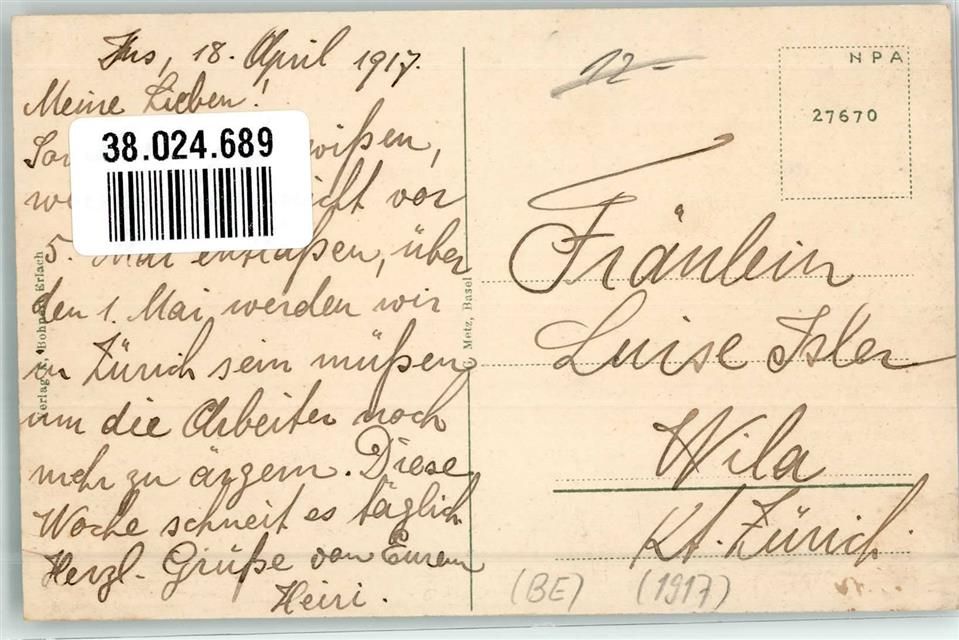 Ins, 18. April 1917.
Meine Lieben!
wißen,
nicht vor
5. Mai entlaßen, über
den 1. Mai werden wir
in Zürich sein müßen
um die Arbeiter noch
mehr zu ärgern. Diese
Woche schneit es täglich
Herzl. Grüße von Eurem
Heiri.
38.024.689
Verlag Bohn Erlach
Metz, Basel
12-
NPA
27670
Fräulein
Luise Isler
Wila
Kt. Zürich.
(BE) (1917)